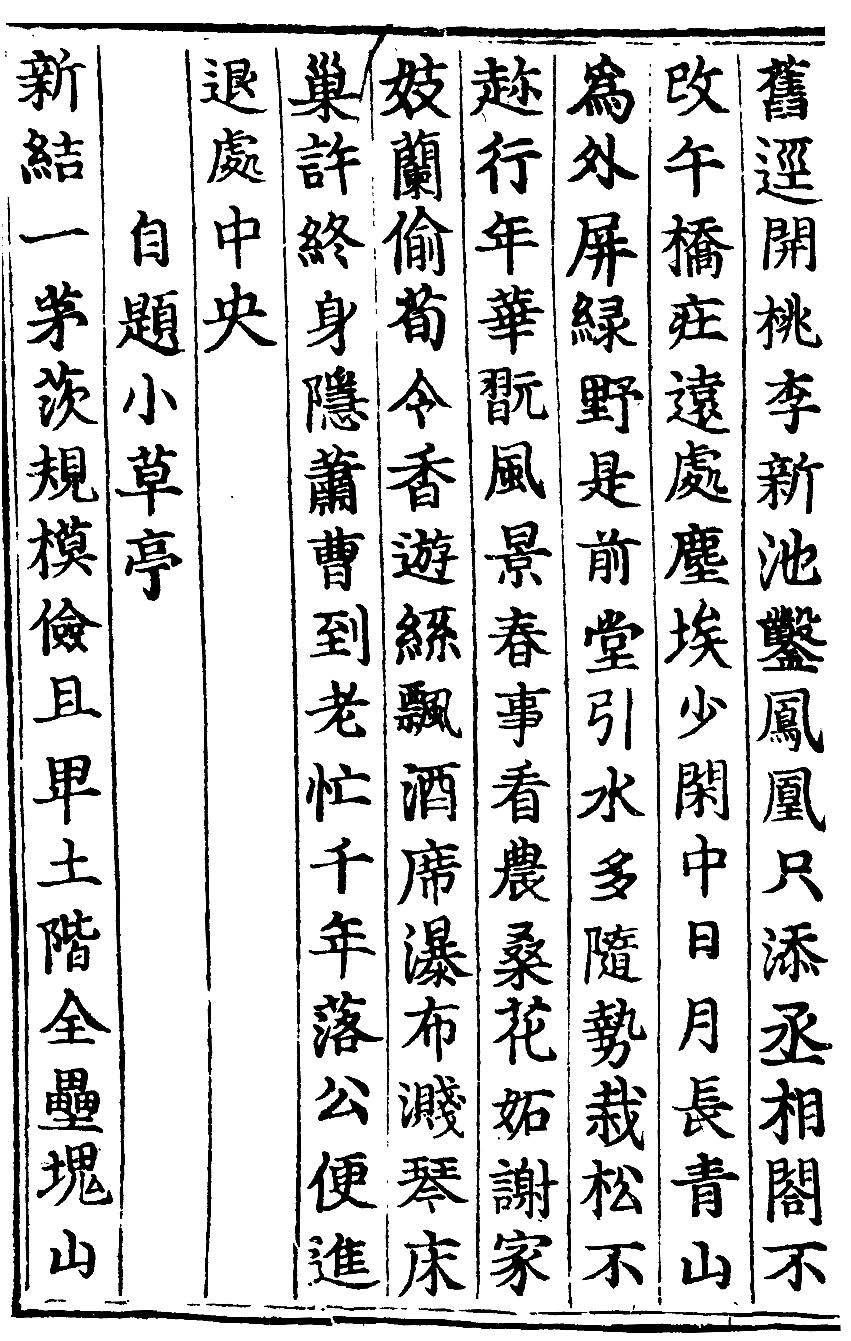 舊逕開桃李新池鑿鳳凰只添丞相閣不
改午橋庄遠處塵埃少閑中日月長青山
為外屏緑野是前堂引水多隨勢栽松不
趂行年華翫風景春事看農桑花妬謝家
妓蘭偷荀令香遊絲飄酒席瀑布濺琴床
巢許終身隱蕭曹到老忙千年落公便進
退處中央
自題小草亭
新結一茅茨規模儉且卑土階全壘塊山